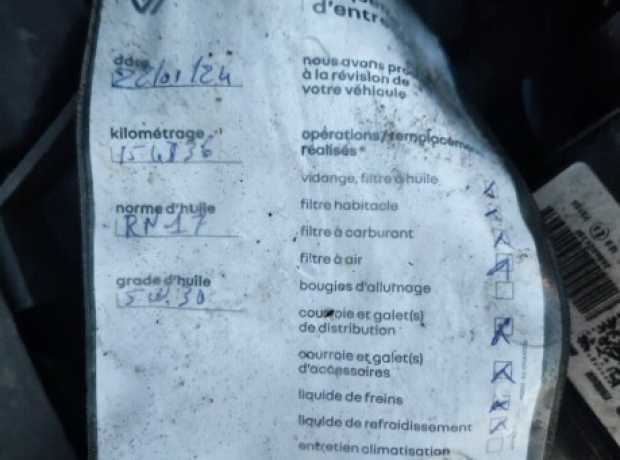 d'entre
date
22/01/24
kilométrage
154836
norme d'huile
RN17
grade d'huile
5W30
nous avons pro
à la révision de
votre véhicule
opérations/remplacemen
réalisés*
vidange, filtre à huile
filtre habitacle
filtre à carburant
filtre à air
bougies d'allumage
courroie et galet(s)
de distribution
courroie et galet(s)
d'accessoires
liquide de freins
liquide de refroidissement
entretien climatisation